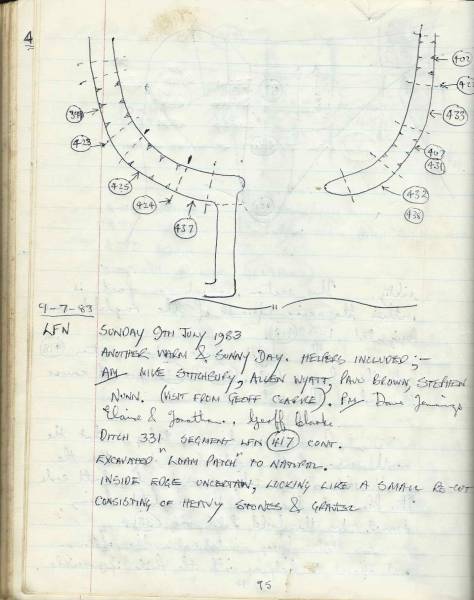 4
402
422
433
407
431
432
436
425
424
437
9-7-83
LFN SUNDAY 9TH JULY 1983
ANOTHER WARM & SUNNY DAY. HELPERS INCLUDED;-
AM MIKE STITCHBURY, ALLEN WYATT, PAUL BROWN, STEPHEN
NUNN. (VISIT FROM GEOFF CLARKE). PM Dave Jennings
Elaine & Jonathan., Geoff Clarke
DITCH 331 SEGMENT LFN 417 CONT.
EXCAVATED "LOAM PATCH" TO NATURAL.
INSIDE EDGE UNCERTAIN, LOOKING LIKE A SMALL RE-CUT
CONSISTING OF HEAVY STONES & GRAVEL
95